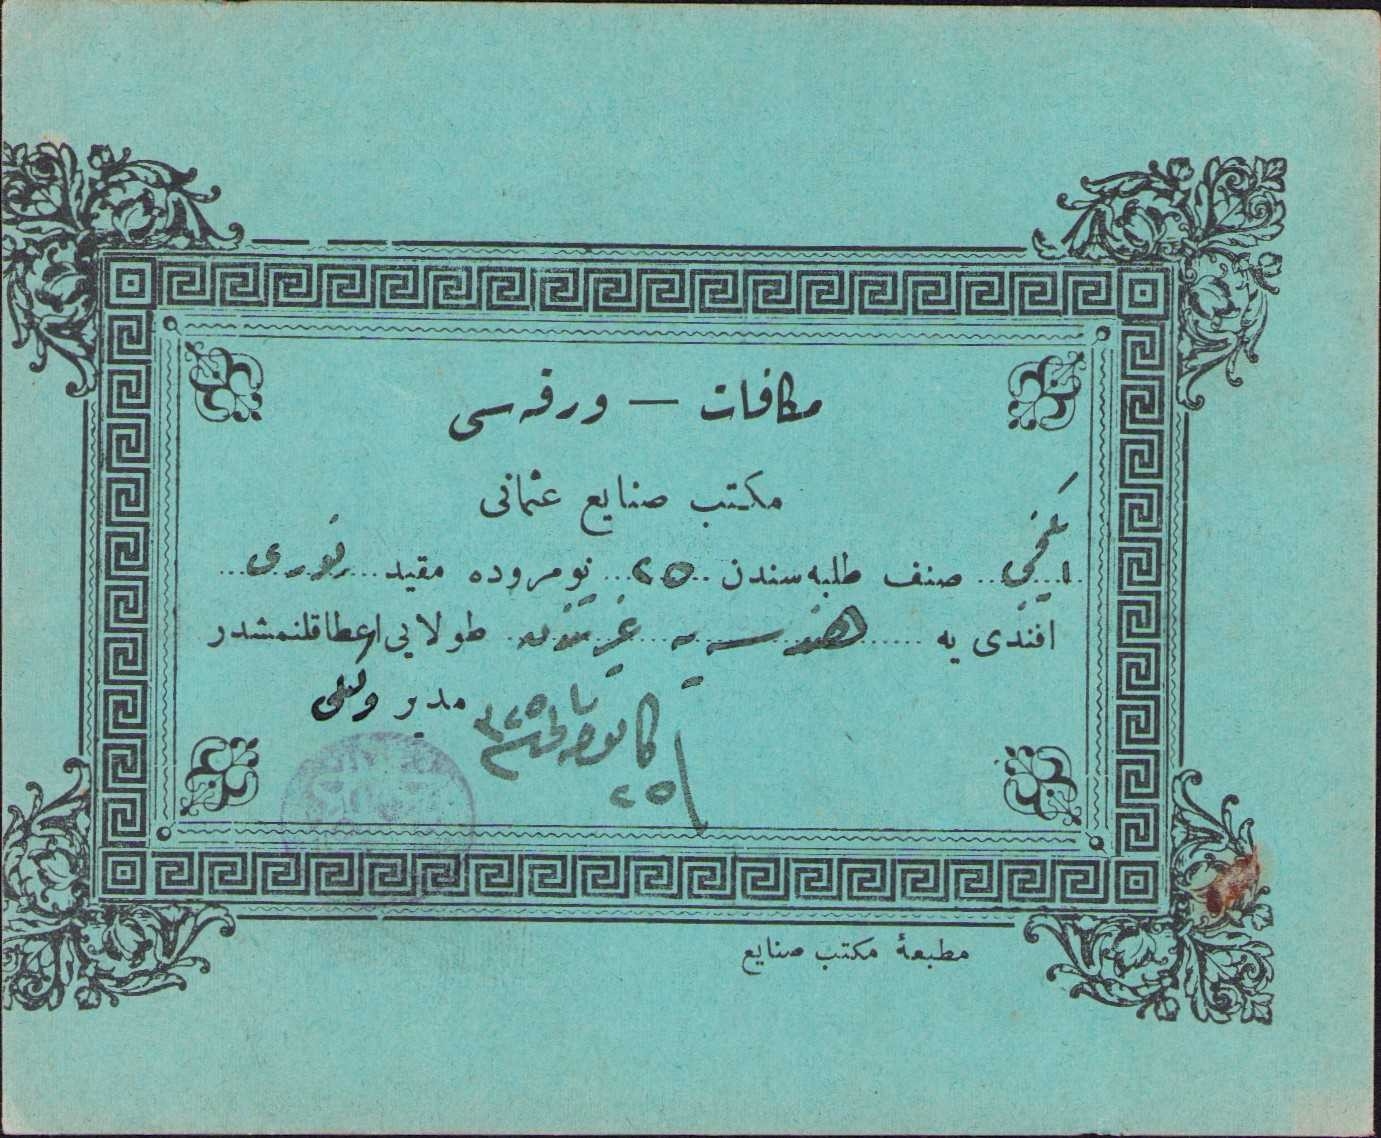 مكافات — ورقه سی
مكتب صنایع عثمانی
ایكنجی صنف طلبه سندن ٢٥ نومروده مقید نوری
افندی یه هندسه یه غیرتندن طولایی اعطا قلنمشدر
مدیر وكیلی
٢٥ كانون ٣٢٥
مطبعهٔ مكتب صنایع